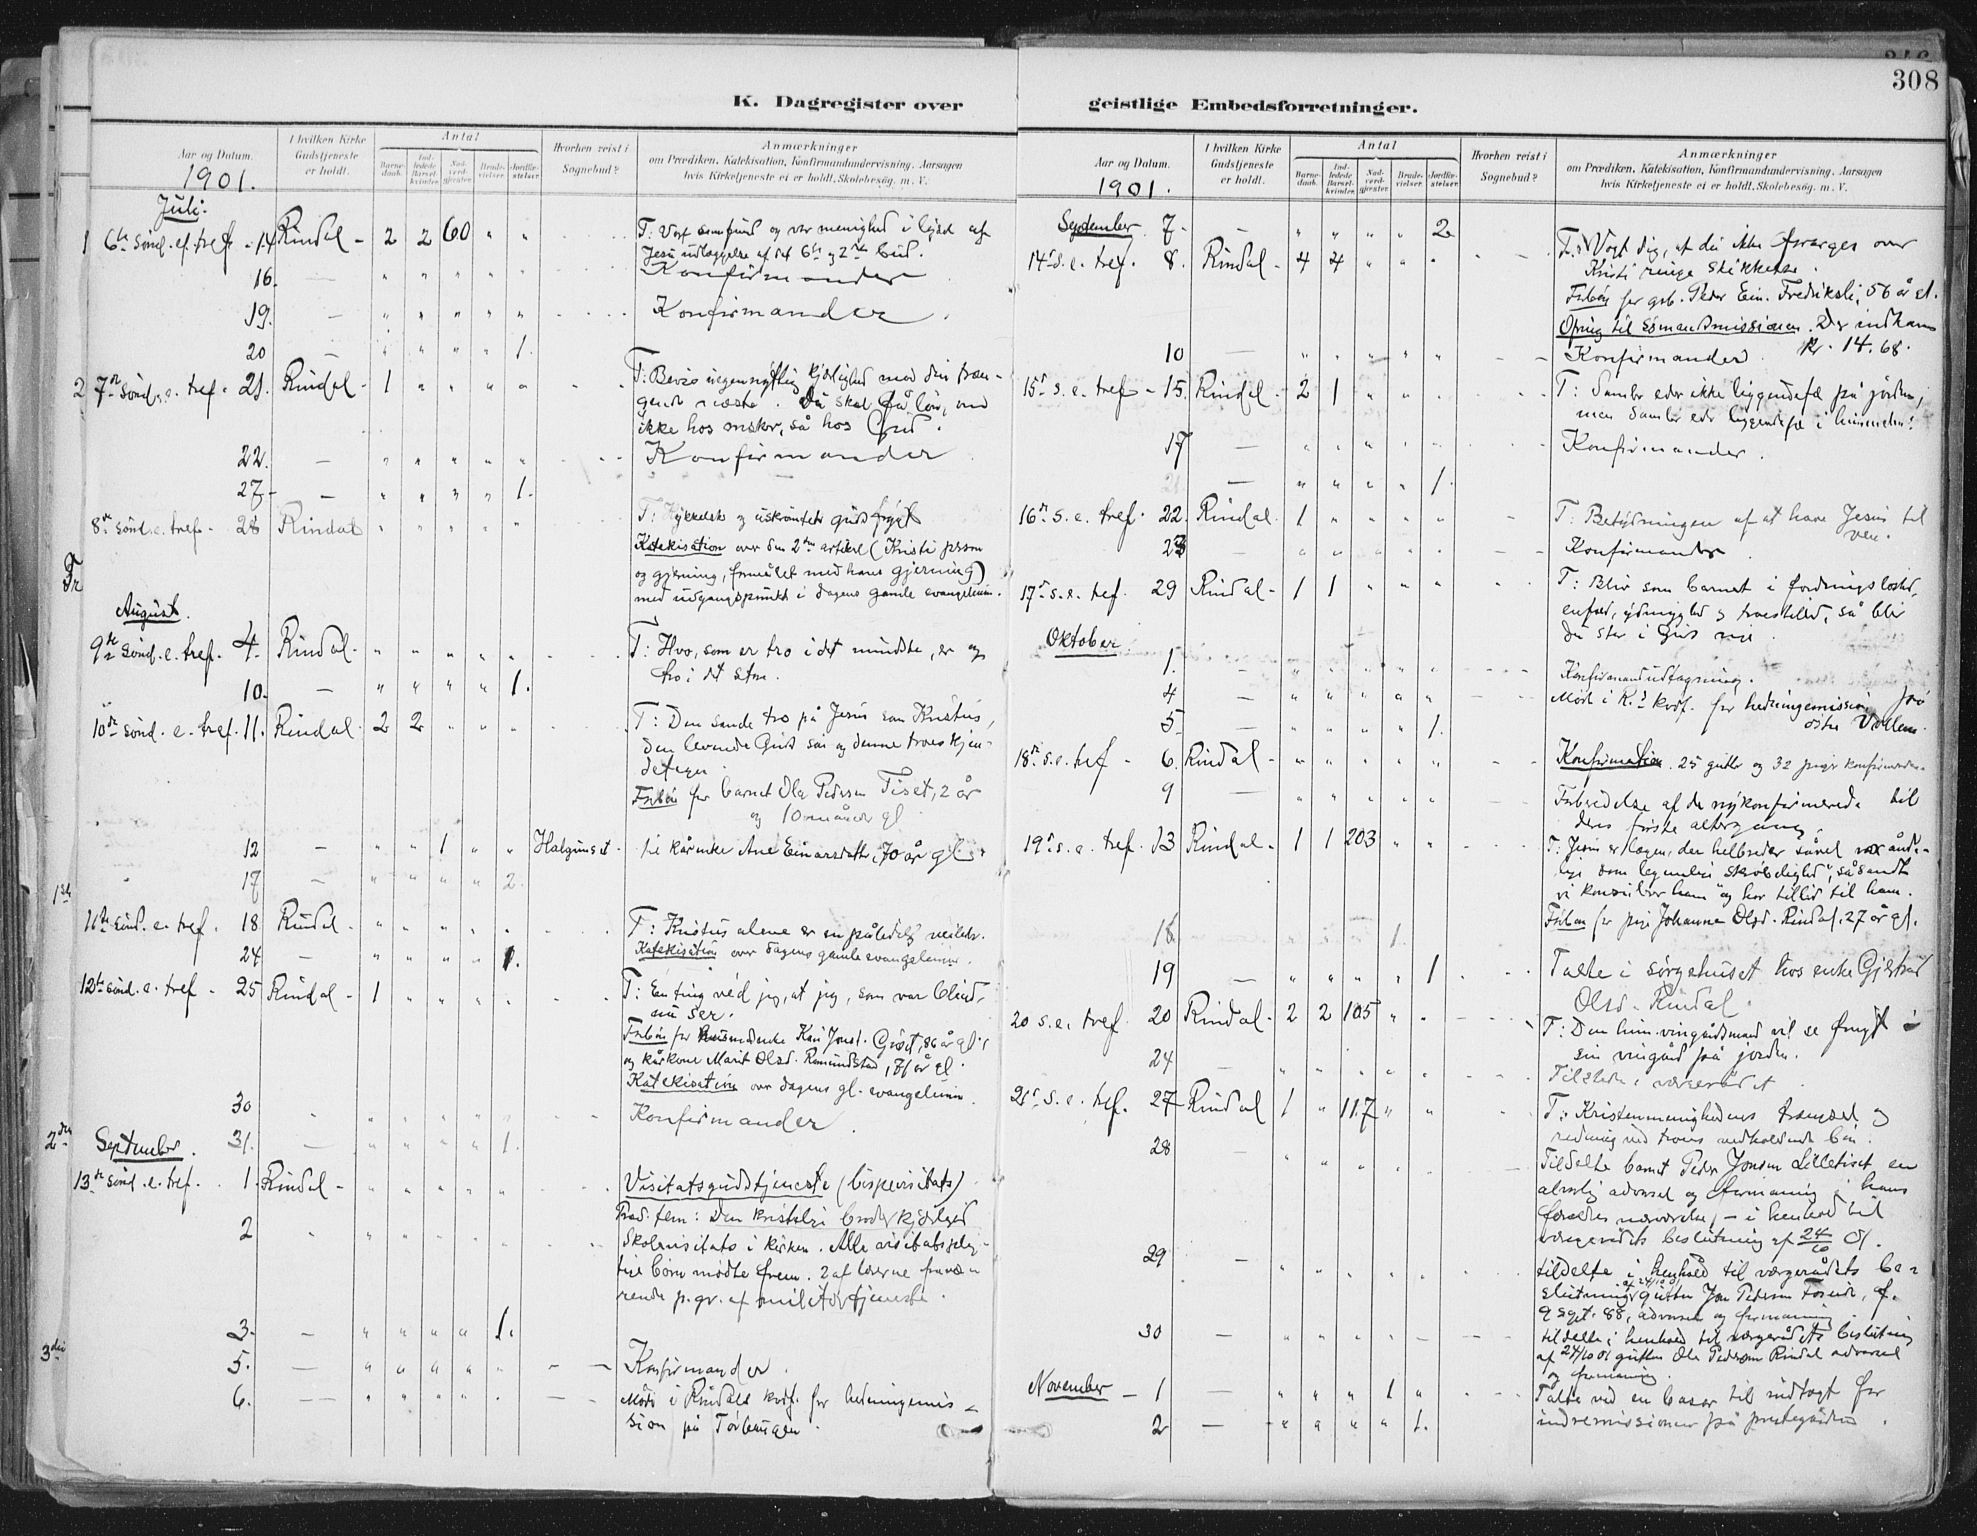 308
K. Dagregister over
geistlige Embedsforretninger.
Aar og Datum.
1901.
I hvilken Kirke
Gudstjeneste
er holdt.
Antal
Barne-
daab.
Ind-
ledede
Barsel-
kvinder.
Nad-
verd-
gjenster.
Brude-
vielser.
Jordfæ-
stelser.
Hvorhen reist i
Sognebud?
Anmærkninger
om Prædiken, Katekisation, Konfirmandundervisning, Aarsagen
hvis Kirketjeneste ei er holdt, Skolebesøg, m. V.
Juli.
1 6te sønd. ef. tref. - 14 Rindal - 2 2 60 " " T: Vort samfund og vor menighed i lyset af
Jesu udlæggelse af det 6te og 2det bud.
16. — " " " " " Konfirmander
19. — " " " " " Konfirmander.
20 — " " " " 1.
2 7de sønd. e. tref. - 21. Rindal - 1 " " " " T: Bevis uegennyttig kjærlighed mod din træn-
gende næste. Du skal få løn, om
ikke hos mnskr, så hos Gud.
22. — " " " " " Konfirmander
27. — " " " " 1.
8de sønd. e. tref. - 28 Rindal " " " " " T: Hykkelsk og uskrømtet gudsfrygt
Katekisation over den 2den artikel (Kristi person
og gjerning, formålet med hans gjerning)
med udgangspunkt i dagens gamle evangelium.
Fr
August.
9de sønd. e. tref. 4. Rindal - " " " " " T: Hvo, som er tro i det mindste, er og
tro i det store.
10. — " " " " 1.
10de sønd. e. tref. 11. Rindal - 2 2 " " " T: Den sande tro på Jesus som Kristus,
den levende Guds søn og denne troes kjen-
detegn
Forbøn for barnet Ola Pedersen Tiset, 2 år
og 10 måneder gl.
12 — " " 1 " " Halgunset - til kårenke Ane Einarsdatter, 70 år gl.
17 — " " " " 2.
1ste
11te sønd. e. tref. 18 Rindal - " " " " " T: Kristus alene er en pålidelig veileder.
Katekisation over dagens gamle evangelium.
24 — " " " " 1.
12te sønd. e. tref - 25 Rindal - 1 " " " " T: En ting véd jeg, at jeg, som var blind,
nu ser.
Forbøn for husmandsenke Kari Jonsd. 86 år gl.
og kårkone Marit Olsd. Romundstad, 71 år gl.
Katekisation over dagens gl. evangelium
30 " " " " " Konfirmander.
2den September. 31. — " " " " 1.
13de sønd. e. tref. 1. Rindal - " " " " " Visitatsgudstjeneste (bispevisitats)
Præd. tem: Den kristelige broderkjærlighed
2 " " " " " Skolevisitats i kirken. Alle visitatsplig-
tige børn mødte frem. 2 af lærerne fravæ-
rende p. gr. af militærtjeneste.
3. — " " " " 1.
3die
5. — " " " " " Konfirmander.
6. — " " " " " Møde i Rindals kvdf. for hedningemis-
sion på
Aar og Datum.
1901.
I hvilken Kirke
Gudstjeneste
er holdt.
Antal
Barne-
daab.
Ind-
ledede
Barsel-
kvinder.
Nad-
verd-
gjenster.
Brude-
vielser.
Jordfæ-
stelser.
Hvorhen reist i
Sognebud?
Anmærkninger
om Prædiken, Katekisation, Konfirmandundervisning, Aarsagen
hvis Kirketjeneste ei er holdt, Skolebesøg, m. V.
September. 7. — " " " " 2.
14de s. e. tref. 8. Rindal - 4 4 " " " T: Vogt dig, at du ikke forarges over
Kristi ringe skikkelse.
Forbøn for gsb. Peder Ein. Fredriksli, 56 år gl.
Ofring til sømandsmissionen. Der indkom
kr. 14.68.
10 — " " " " " Konfirmander
15de s. e. tref - 15. Rindal - 2 1 " " " T: Samler eder ikke liggendefæ på jorden,
men samler eder liggendefæ i himmelen!
17 — " " " " " Konfirmander.
— " " " " 1.
16de s. e. tref. 22. Rindal. 1 " " " " T: Betydningen af at have Jesus til
ven.
23 — " " " " " Konfirmander.
17de s. e. tref. 29 Rindal - 1 1 " " " T: Bliv som barnet i fordringsløshed,
enfold, ydmyghed og troeskilled, så blir
du stor i Guds rige.
Oktober.
1. — " " " " " Konfirmandudtagning.
4 — " " " " " Møde i K.s kvdf. for hedningemission på
østre Vollen.
5 — " " " " 1.
18de s. e. tref - 6. Rindal - " " " " " Konfirmation. 25 gutter og 32 piger konfirmeredes
9 — " " " " " Forberedelse af de nykonfirmerede til
deres første altergang.
19de s. e. tref. 13 Rindal - 1 1 203 " " T: Jesus er lægen, der helbreder såvel ånde-
lige som legemlige skrøbelighed, såsandt
vi konsulerer ham og har tillid til ham.
Forbøn for pige Johanna Olsd. Rindal, 27 år gl.
18. " " " 1.
19 — " " " " 1 Talte i sørgehuset hos enke Gjertrud
Olsd. Rindal.
20 s. e. tref. 20 Rindal - 2 2 105 " " T: Den him. vingårdsmand vil se frugt i
sin vingård på jorden.
24 — " " " " " Tilstede i værgerådet.
21de s. e. tref. 27 Rindal 1 " 117 " " T: Kristenmenighedens trængsel og
redning ved troens vedholdende bøn.
28 — " " " " " Tildelte barnet Peder Jonsen Lilletiset en
alvorlig advarsel og formaning i hans
forældres nærværelse, - i henhold til
værgerådets beslutning af 24/10 01.
29 — " " " " " tildelte i henhold til værgerådets be-
slutning af 24/10 01 gutten Jon Pedersen f.
9 sept. 88, advarsel og formaning
30 — " " " " " tildelte i henhold til værgerådets beslutning
af 24/10 01 gutten Ole Pedersen Rindal advarsel
og formaning.
November - 1 — " " " 1 " Talte ved en basar til indtægt for
indremissionen på prestegården.
2 — " " " " 1.